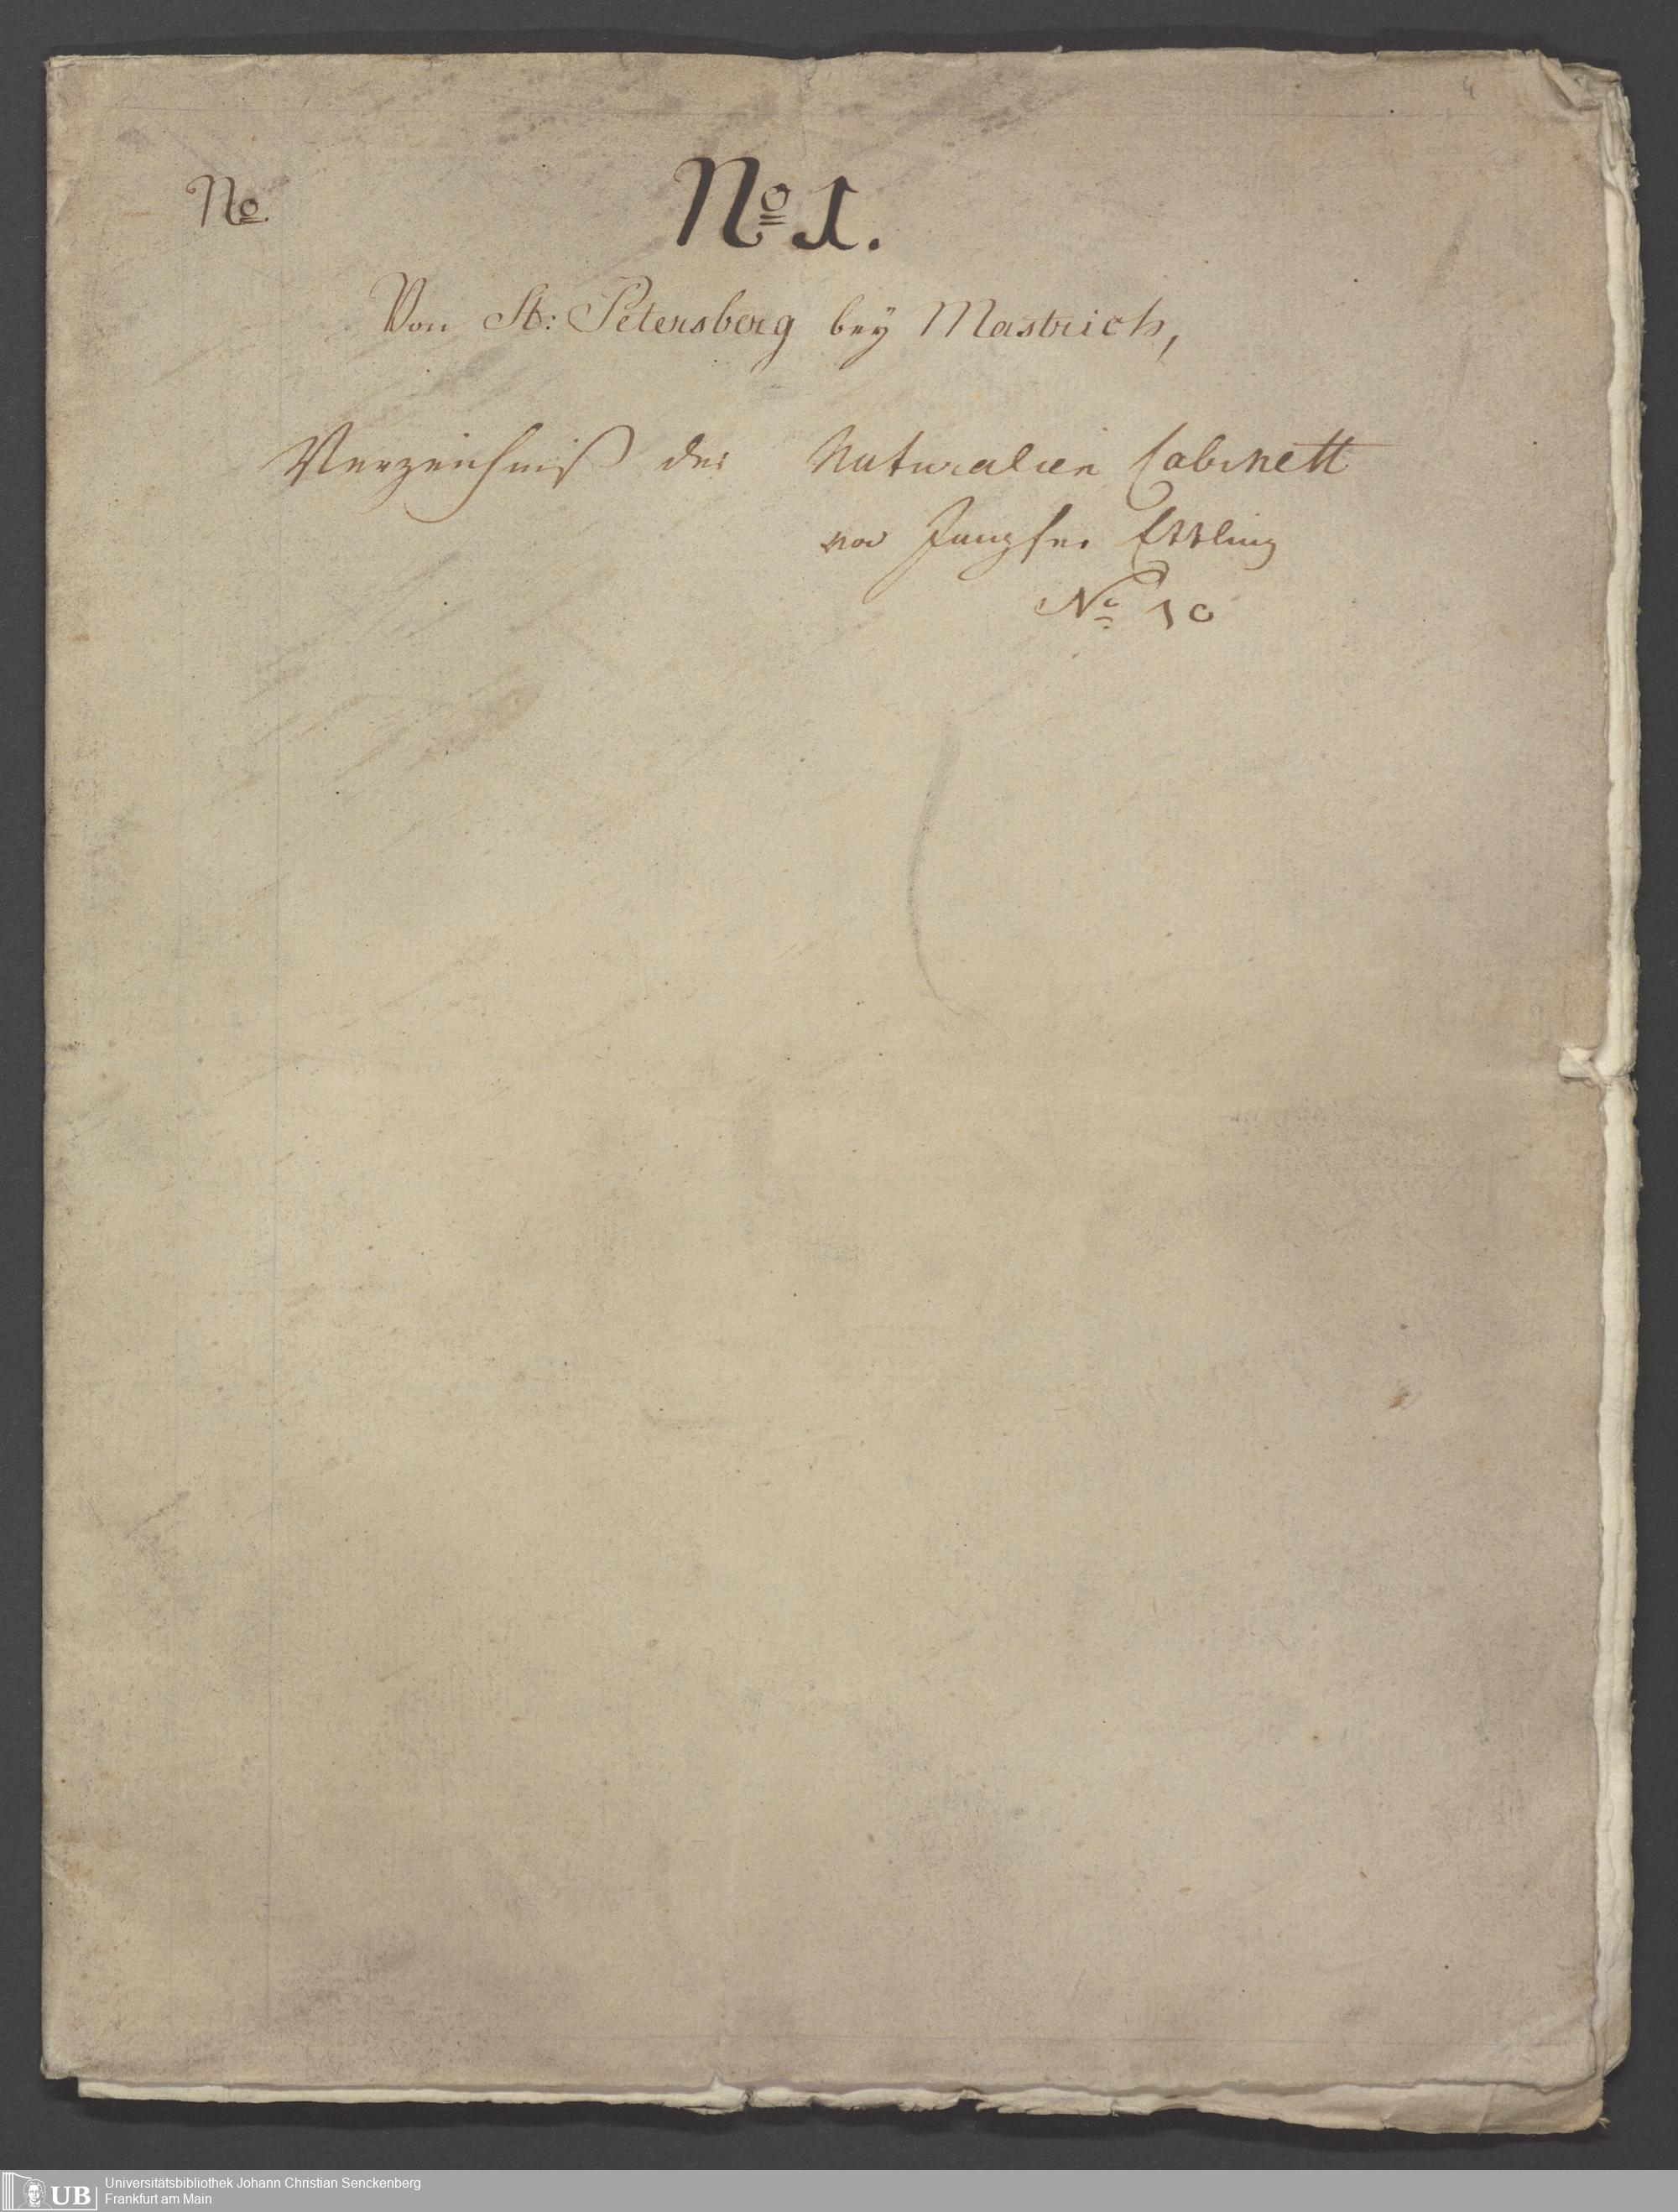 No
No 1.
Von St: Petersberg bey Mastrich,
Verzeichniß des Naturalien Cabinett
von Jungfer Ettling
No 10
UB Universitätsbibliothek Johann Christian Senckenberg
Frankfurt am Main